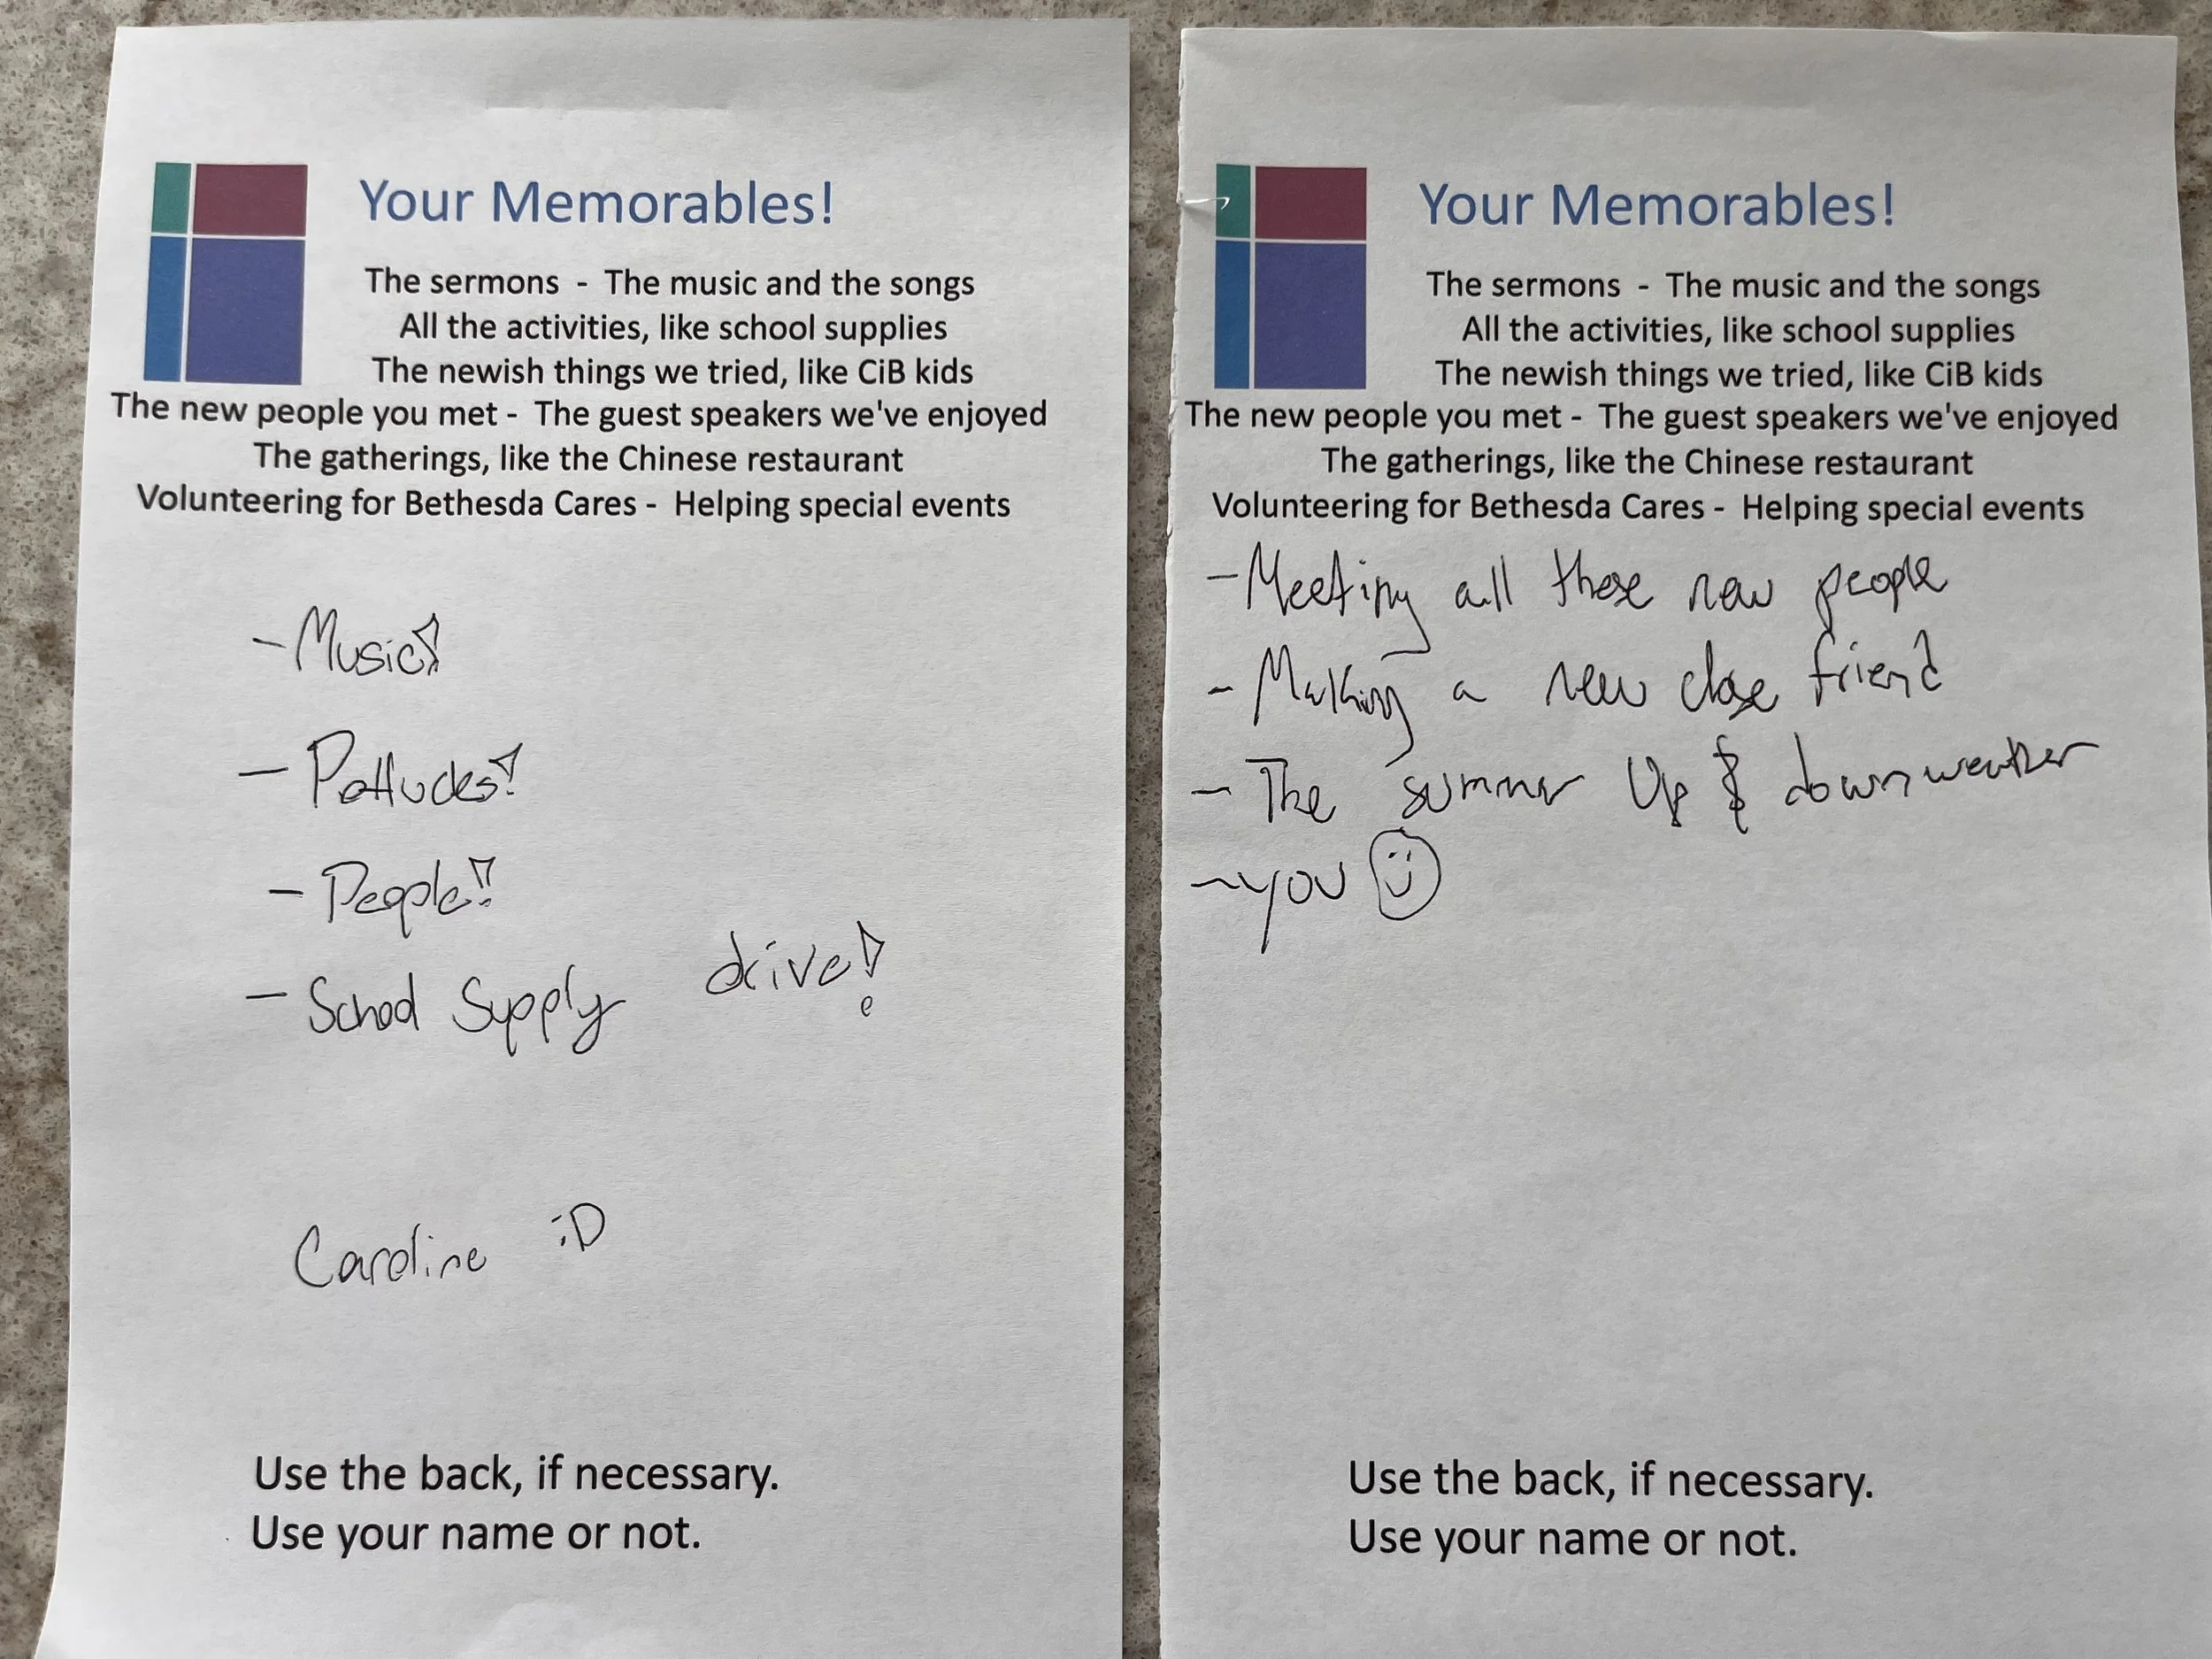 Your Memorables!
The sermons - The music and the songs
All the activities, like school supplies
The newish things we tried, like CiB kids
The new people you met - The guest speakers we've enjoyed
The gatherings, like the Chinese restaurant
Volunteering for Bethesda Cares - Helping special events
- Music!
- Potlucks!
- People!!
- School Supply drive!
Caroline :D
Use the back, if necessary.
Use your name or not.
Your Memorables!
The sermons - The music and the songs
All the activities, like school supplies
The newish things we tried, like CiB kids
The new people you met - The guest speakers we've enjoyed
The gatherings, like the Chinese restaurant
Volunteering for Bethesda Cares - Helping special events
- Meeting all these new people
- Making a new close friend
- The summer Up & down weather
- you
Use the back, if necessary.
Use your name or not.